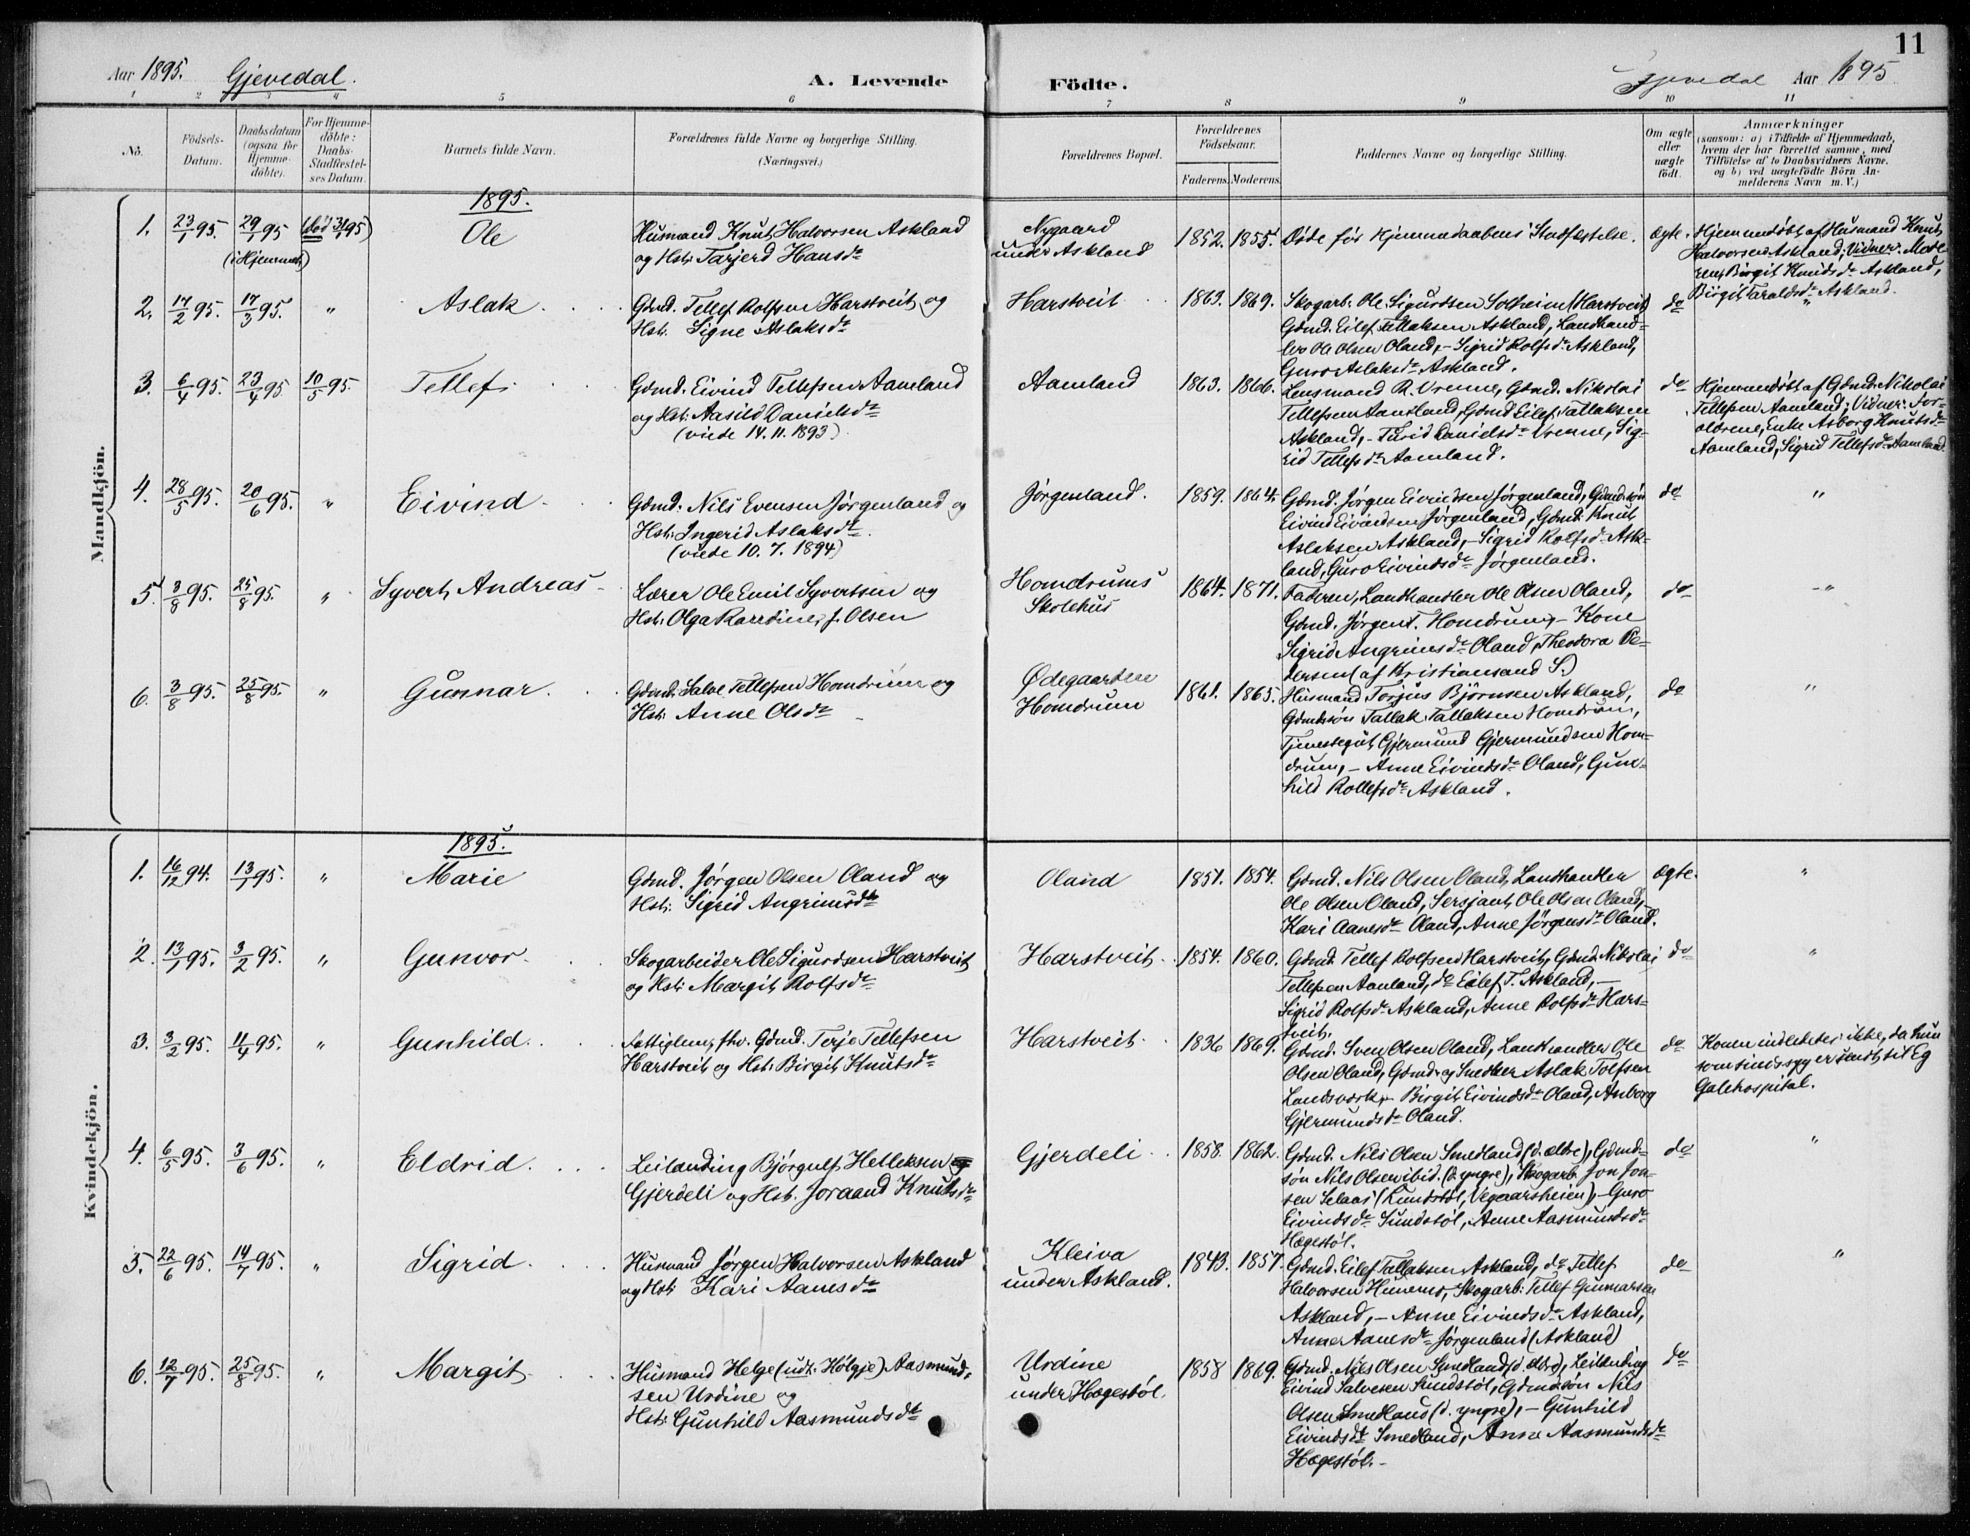 11
Aar 1895. Gjevedal. A. Levende Födte. Gjevedal Aar 1895
1 2 3 4 5 6 7 8 9 10 11
No.
Födsels-
Datum.
Daabsdatum
(ogsaa for
Hjemme-
döbte).
For Hjemme-
döbte:
Daabs-
Stadfæstel-
ses Datum.
Barnets fulde Navn.
Forældrenes fulde Navne og borgerlige Stilling.
(Næringsvei.)
Forældrenes Bopæl.
Forældrenes
Födselsaar.
Faderens. Moderens.
Faddernes Navne og borgerlige Stilling.
Om ægte
eller
uægte
födt.
Anmærkninger
(saasom: a) i Tilfælde af Hjemmedaab,
hvem der har forrettet samme, med
Tilföielse af to Daabsvidners Navne.
og b) ved uægtefödte Börn An-
melderens Navn m. V.)
Mandkjön.
1895.
1. 23/1 95. 29/1 95 (i Hjemmet) (død 31/1 95) Ole
Husmand Knut Halvorsen Askland
og Hst: Tarjerd Hansdr
Nygaard
under Askland
1852. 1855. Døde før Hjemmedaabens Stadfæstelse. ægte.
Hjemmedøbt af Husmand Knut
Halvorsen Askland; Vidner: Mode-
ren, Birgit Knudsdr Askland,
Birgit Taraldsdr Askland.
2. 17/2 95. 17/3 95. " Aslak
Gdmd. Tellef Rolfsen Harstveit og
Hst: Signe Aslaksdr
Harstveit 1863. 1869.
Skogarb. Ole Sigurdsen Solheim (Harstveit)
Gdmd. Eilef Tallaksen Askland, Landhand-
ler Ole Olsen Oland, – Sigrid Rolfsdr Askland,
Guro Aslaksdr Askland.
do
3. 6/4 95. 23/4 95 10/5 95 Tellef
Gdmd. Eivind Tellefsen Aamland
og Hst: Aasild Danielsdr
(viede 14.11.1893)
Aamland 1863. 1866.
Lensmand R. Vrenne, Gdmd. Nikolai
Tellefsen Aamland, Gdmd Eilef Tallaksen
Askland, – Turid Danielsdr Vrenne, Sig-
rid Tellefsdr Aamland.
do
Hjemmedøbt af Gdmd. Nikolai
Tellefsen Aamland; Vidner: For-
ældrene, Enke Asborg Knutsdr
Aamland, Sigrid Tellefsdr Aamland
4. 28/5 95. 20/6 95. " Eivind
Gdmd. Nils Evensen Jørgenland og
Hst: Ingerid Aslaksdr
(viede 10. 7. 1894)
Jørgenland. 1859. 1864.
Gdmd. Jørgen Eivindsen Jørgenland, Gdmdsøn
Eivind Eivindsen Jørgenland, Gdmd. Knut
Aslaksen Askland, – Sigrid Rolfsdr Ask-
land, Guro Eivindsdr Jørgenland.
do "
5. 3/8 95. 25/8 95. " Syvert Andreas
Lærer Ole Emil Syvertsen og
Hst: Olga f. Olsen
Homdrums
Skolehus
1864. 1871.
Faderen, Landhandler Ole Olsen Oland,
Gdmd. Jørgen T. Homdrum, – Kone
Sigrid Angrimsdr Oland, Theodora Pe-
dersen (af Kristiansand S.)
do "
6. 3/8 95. 25/8 95. " Gunnar
Gdmd. Salve Tellefsen Homdrum og
Hst: Anne Olsdr
Ødegaarden
Homdrum
1861. 1865.
Husmand Torjus Bjørnsen Askland,
Gdmdsøn Tallak Tallaksen Homdrum,
Tjenestegut Gjermund Gjermundsen Hom-
drum, – Anne Eivindsdr Oland, Gun-
hild Rollefsdr Askland.
do "
Kvindekjön.
1895.
1. 16/12 94. 13/1 95. " Marie
Gdmd. Jørgen Olsen Oland og
Hst: Sigrid Angrimsdtr
Oland 1851. 1854.
Gdmd. Nils Olsen Oland, Landhandler
Ole Olsen Oland, Sersjant Ole Olsen Oland,
Kari Aanesdr Oland, Anne Jørgensdr Oland.
ægte. "
2. 13/1 95. 3/2 95. " Gunvor
Skogarbeider Ole Sigurdsen Harstveit
og Hst: Margit Rolfsdr
Harstveit 1854. 1860.
Gdmd. Tellef Rolfsen Harstveit, Gdmd. Nikolai
Tellefsen Aamland, do Eilef T. Askland, –
Sigrid Rolfsdr Askland, Anne Rolfsdr Hars-
tveit.
do "
3. 3/2 95. 11/4 95. " Gunhild
Fattiglem, fhv. Gdmd. Terje Tellefsen
Harstveit og Hst: Birgit Knutsdr
Harstveit 1836 1869.
Gdmd. Sven Olsen Oland, Landhandler Ole
Olsen Oland, Gdmd. og Snedker Aslak Tolfsen
Landsværk, – Birgit Eivindsdr Oland, Anborg
Gjermundsdr Oland.
do
Konen indledetes ikke, da hun
som sindssyg er sendt til Eg
Galehospital.
4. 6/5 95. 3/6 95. " Eldrid
Leilænding Bjørgulf Helleksen
Gjerdeli og Hst. Joraand Knutsdr
Gjerdeli 1858. 1862.
Gdmd. Nils Olsen Smedland (d. ældre), Gdmd-
søn Nils Olsen ibid. (d. yngre), Skogarb. Jon Jon-
sen Selaas (Sundstøl, Vegaarsheien), – Guro
Eivindsdr Sundstøl, Anne Aasmundsdr
Hægestøl.
do "
5. 22/6 95. 14/7 95. " Sigrid
Husmand Jørgen Halvorsen Askland
og Hst: Kari Aanesdr
Kleiva
under Askland.
1843. 1857.
Gdmd. Eilef Tallaksen Askland, do Tellef
Halvorsen, Skogarb. Tellef Gunnarsen
Askland, – Anne Eivindsdr Askland,
Anne Aanesdr Jørgenland (Askland)
do "
6. 12/7 95. 25/8 95. " Margit
Husmand Helge (udt: Hølgje) Aasmund-
sen Urdine og
Hst: Gunhild Aasmundsdtr
Urdine
under Hægestøl.
1858 1869.
Gdmd. Nils Olsen Smedland (d. ældre), Leilending
Eivind Salvesen Sundstøl, Gdmdsøn Nils
Olsen Smedland (d. yngre), – Gunhild
Eivindsdtr Smedland, Anne Aasmundsdr
Hægestøl. –
do